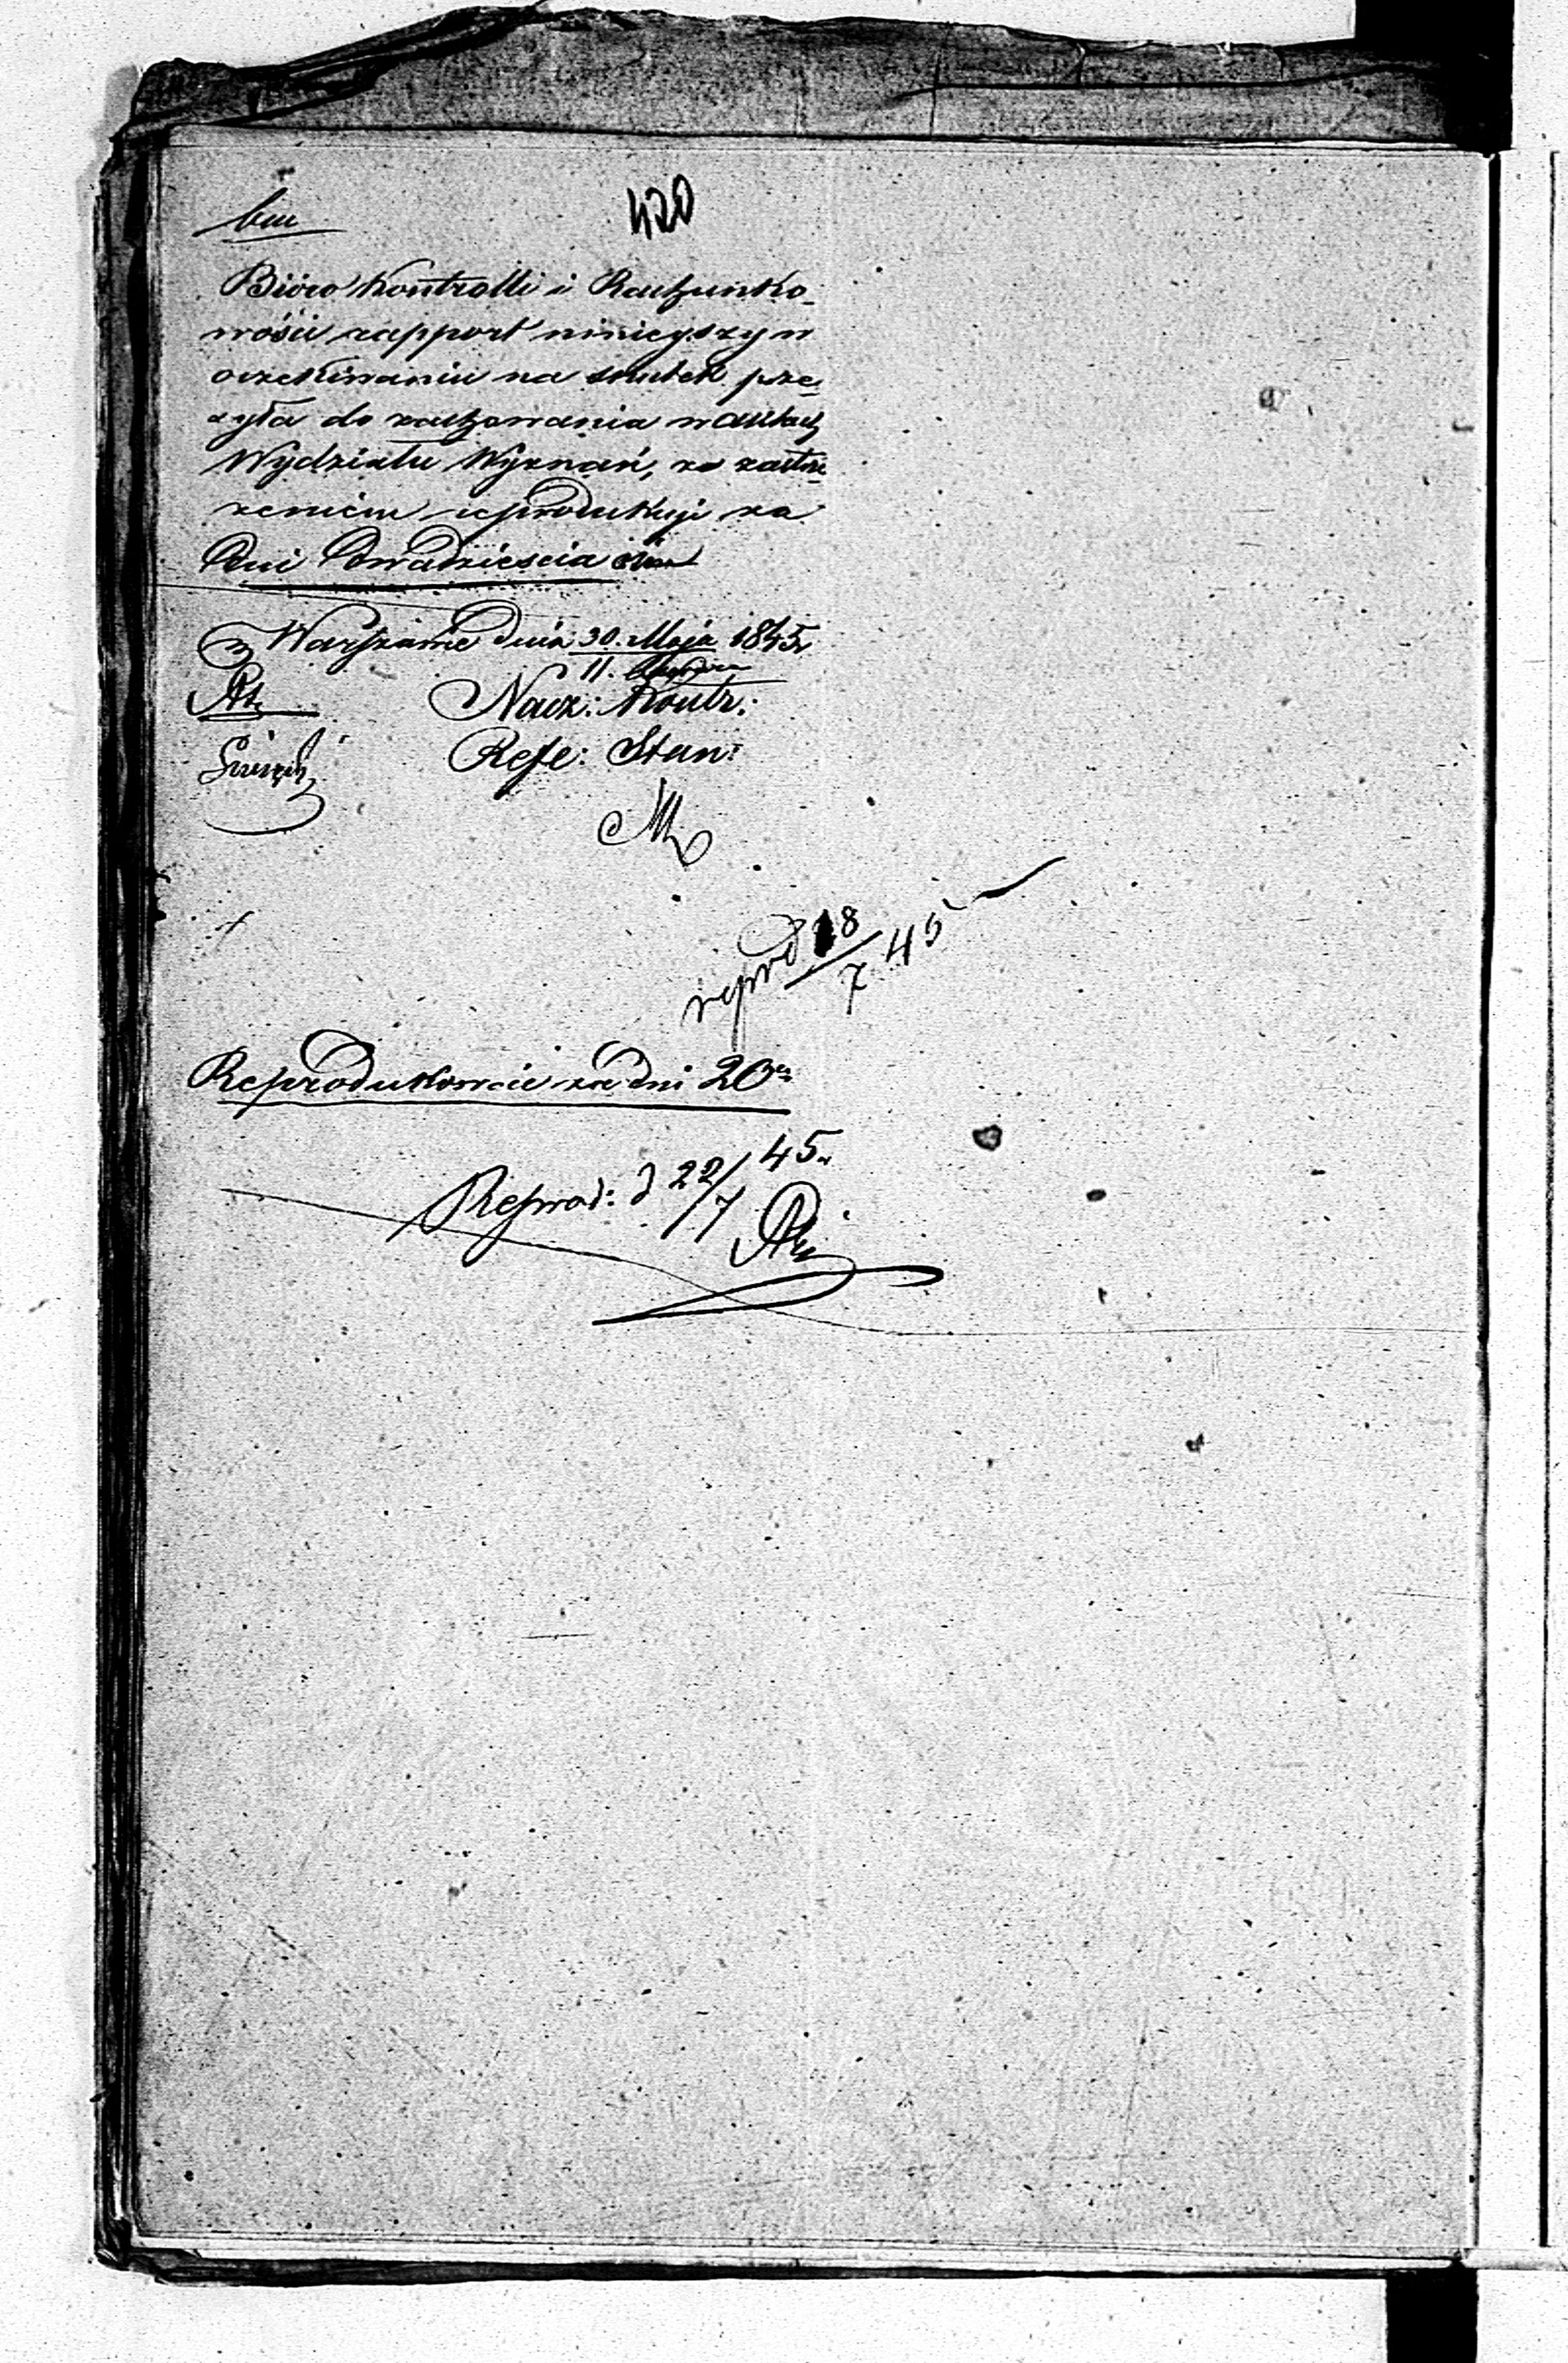 420
Bióro Kontrolli i Rachunko-
wości rapport ninieyszy w
oczekiwaniu na skutek prze-
syła do zachowania w aktach
Wydziału Wyznań, za zastrze-
żeniem reprodukcji za
Dni Dwadzieścia
w Warszawie dnia 30. Maja 1845 r
11. Czerwca
Nacz: Kontr:
Refe: Stan:
reprod 18/7 45
Reprodukowcie za dni 20
Reprod: d 22/7 45